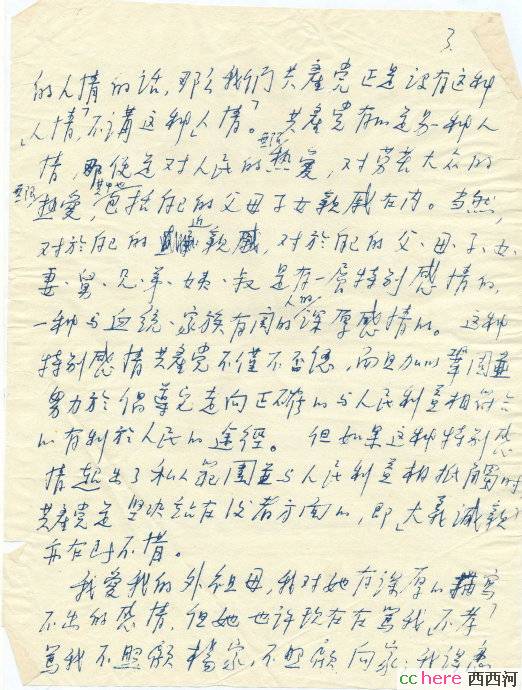 3.
的人情的话，那么我们共產党正是没有这种
"人情"，不講这种"人情"。共產党有的是另一种人
情，那便是对人民的无限热爱，对劳苦大众的
无限热爱，其中也包括自己的父母子女親戚在内。当然，
对於自己的近親，对於自己的父、母、子、女、
妻、舅、兄、弟、姨、叔是有一层特别感情的，
一种与血统、家族有関的人的深厚感情的。这种
特别感情共產党不僅不否認，而且加以鞏固並
努力於倡導它走向正確的与人民利益相符合
的有利於人民的途徑。但如果这种特别感
情超出了私人範圍並与人民利益相抵觸时，
共產党是坚决站在后者方面的，即"大義滅親"
亦在所不惜。
我爱我的外祖母，我对她有深厚的描寫
不出的感情，但她也许现在在罵我"不孝"，
罵我不照顧楊家，不照顧向家；我
cchere 西西河